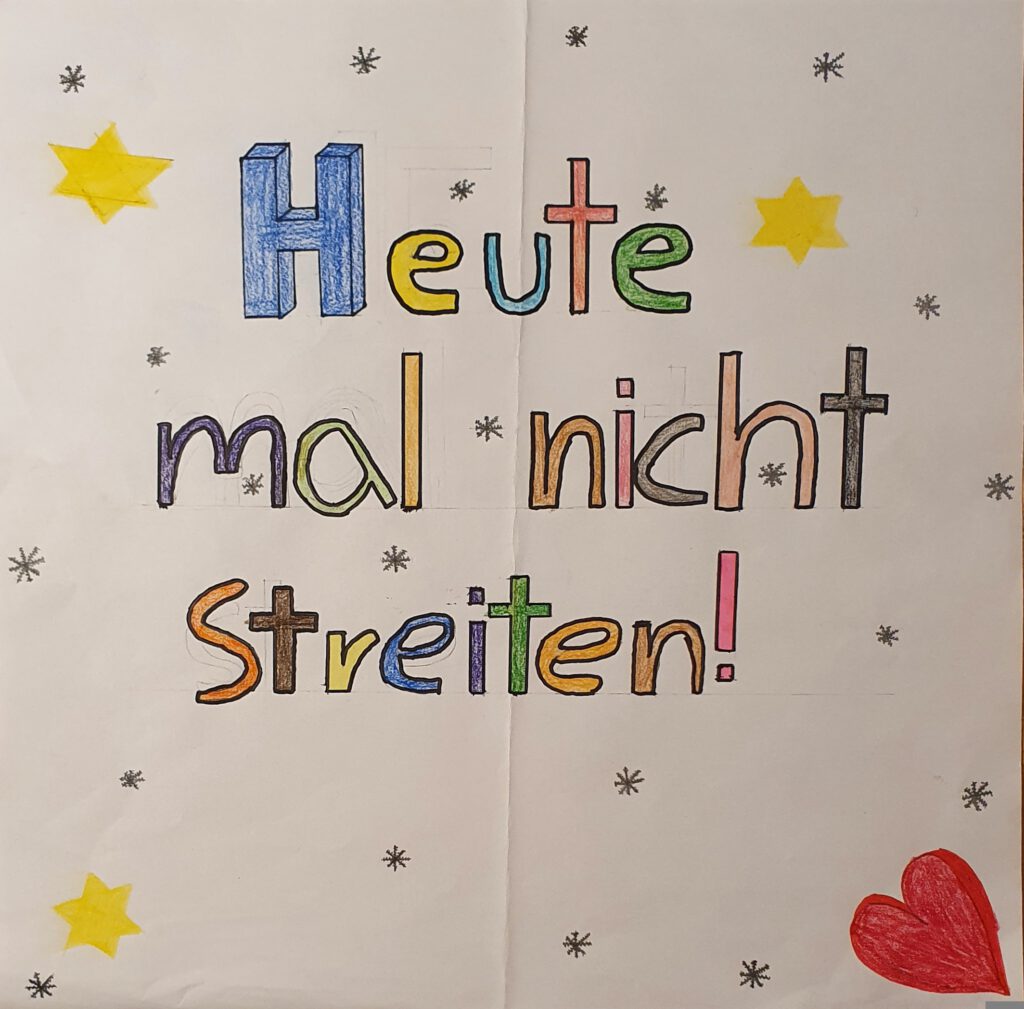 Heute
mal nicht
Streiten!